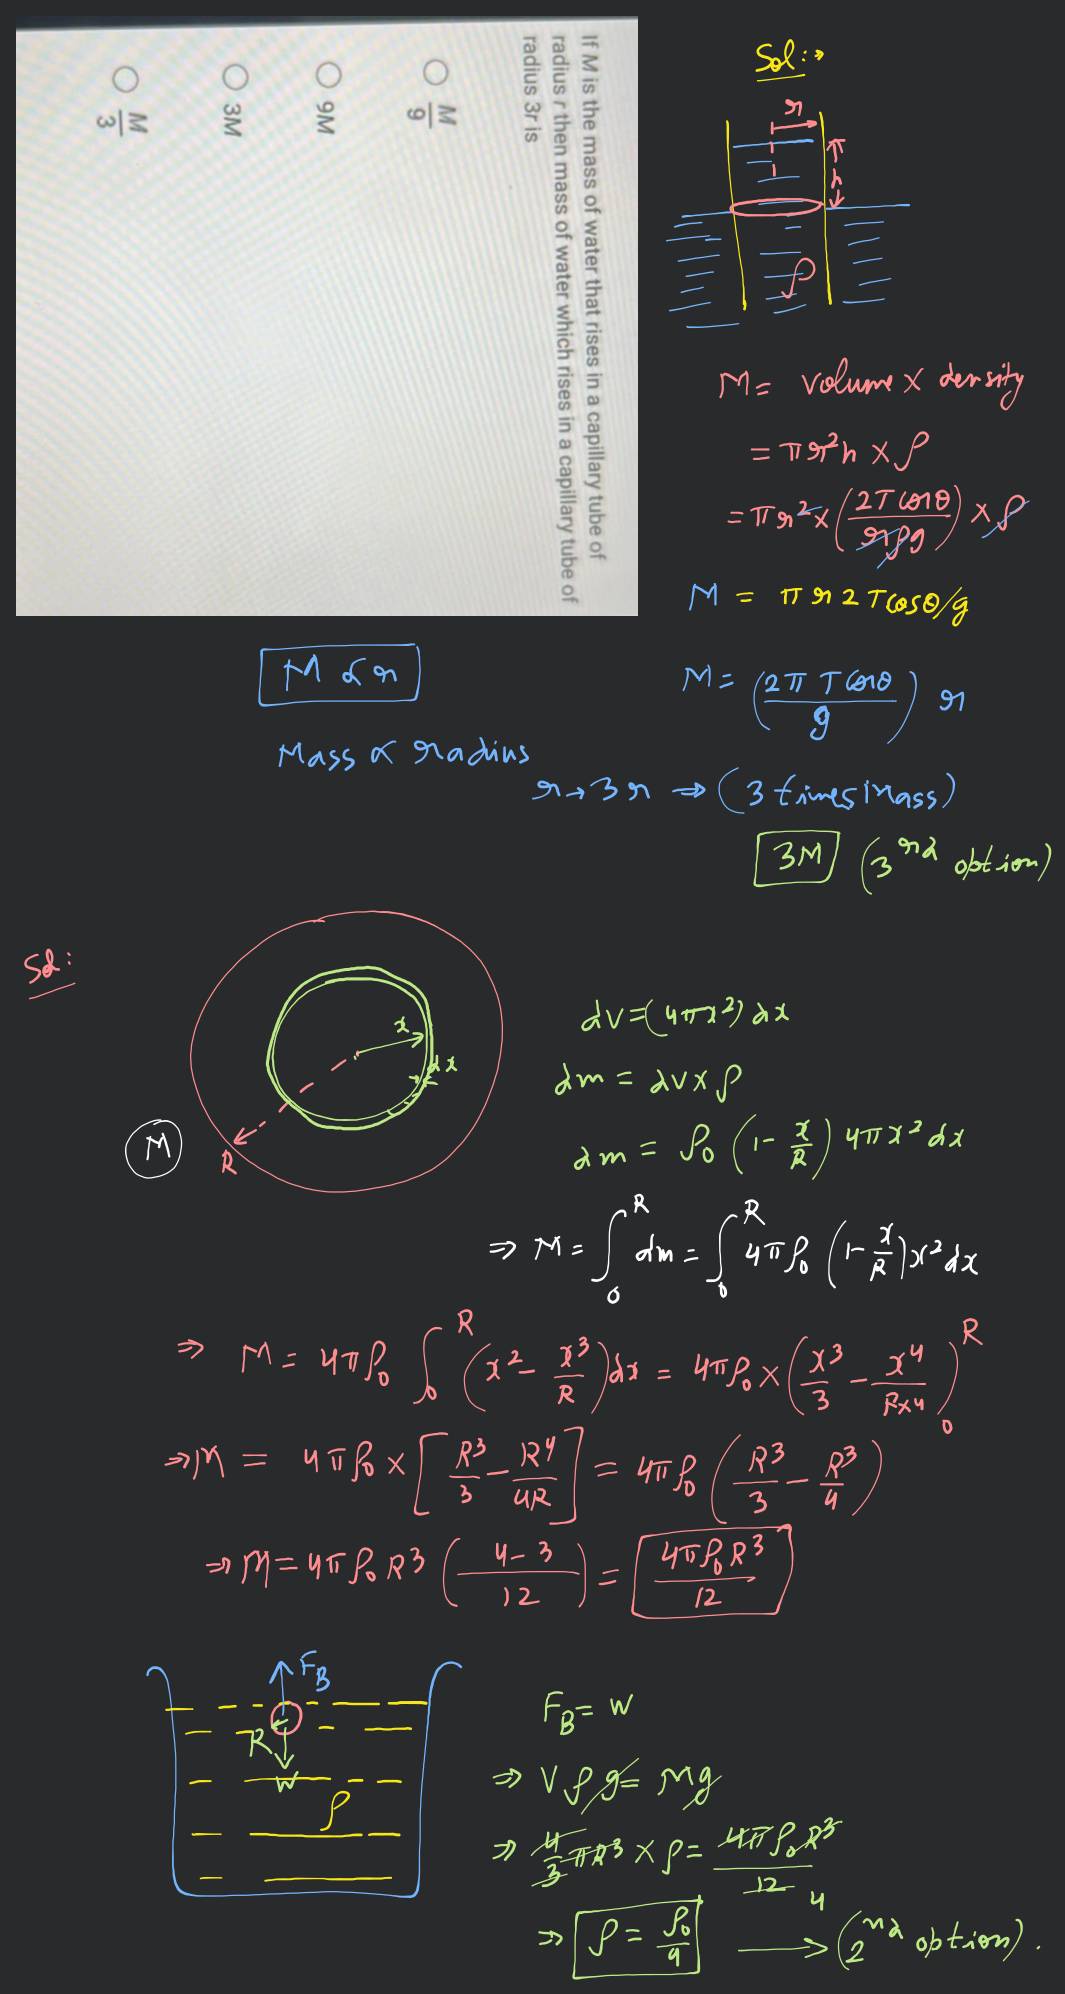 If M is the mass of water that rises in a capillary tube of
radius r then mass of water which rises in a capillary tube of
radius 3r is
M/9
9M
3M
M/3
Sol:→
r
h
ρ
M = volume × density
= πr²h × ρ
= πr² × (2Tcosθ/rρg) × ρ
M = πr2Tcosθ/g
M = (2πTcosθ/g) r
M α r
Mass α radius
r→3r ⇒ (3 times Mass)
3M (3rd option)
Sol:
x
dx
R
M
dv=(4πx²)dx
dm = dv×ρ
dm = ρ₀(1-x/R)4πx²dx
⇒ M = ∫₀ᴿ dm = ∫₀ᴿ 4πρ₀(1-x/R)x²dx
⇒ M = 4πρ₀ ∫₀ᴿ (x²-x³/R)dx = 4πρ₀×(x³/3 - x⁴/R×4)₀ᴿ
⇒M = 4πρ₀×[R³/3 - R⁴/4R] = 4πρ₀(R³/3 - R³/4)
⇒M=4πρ₀R³(4-3/12) = 4πρ₀R³/12
F_B
R
W
ρ
F_B = W
⇒ Vρg = Mg
⇒ 4/3πR³×ρ = 4πρ₀R³/12 4
⇒ ρ = ρ₀/4 → (2nd option).